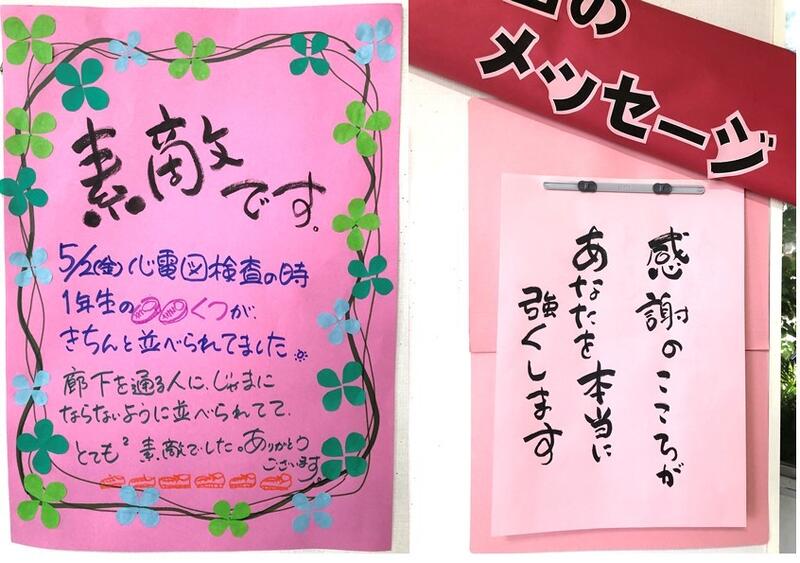 素敵です。
5/2(金)心電図検査の時
1年生のくつが、
きちんと並べられてました
廊下を通る人に、じゃまに
ならないように並べられてて、
とても²素敵でした。ありがとう
ございます。
の
メッセージ
感謝のこころが
あなたを本当に
強くします